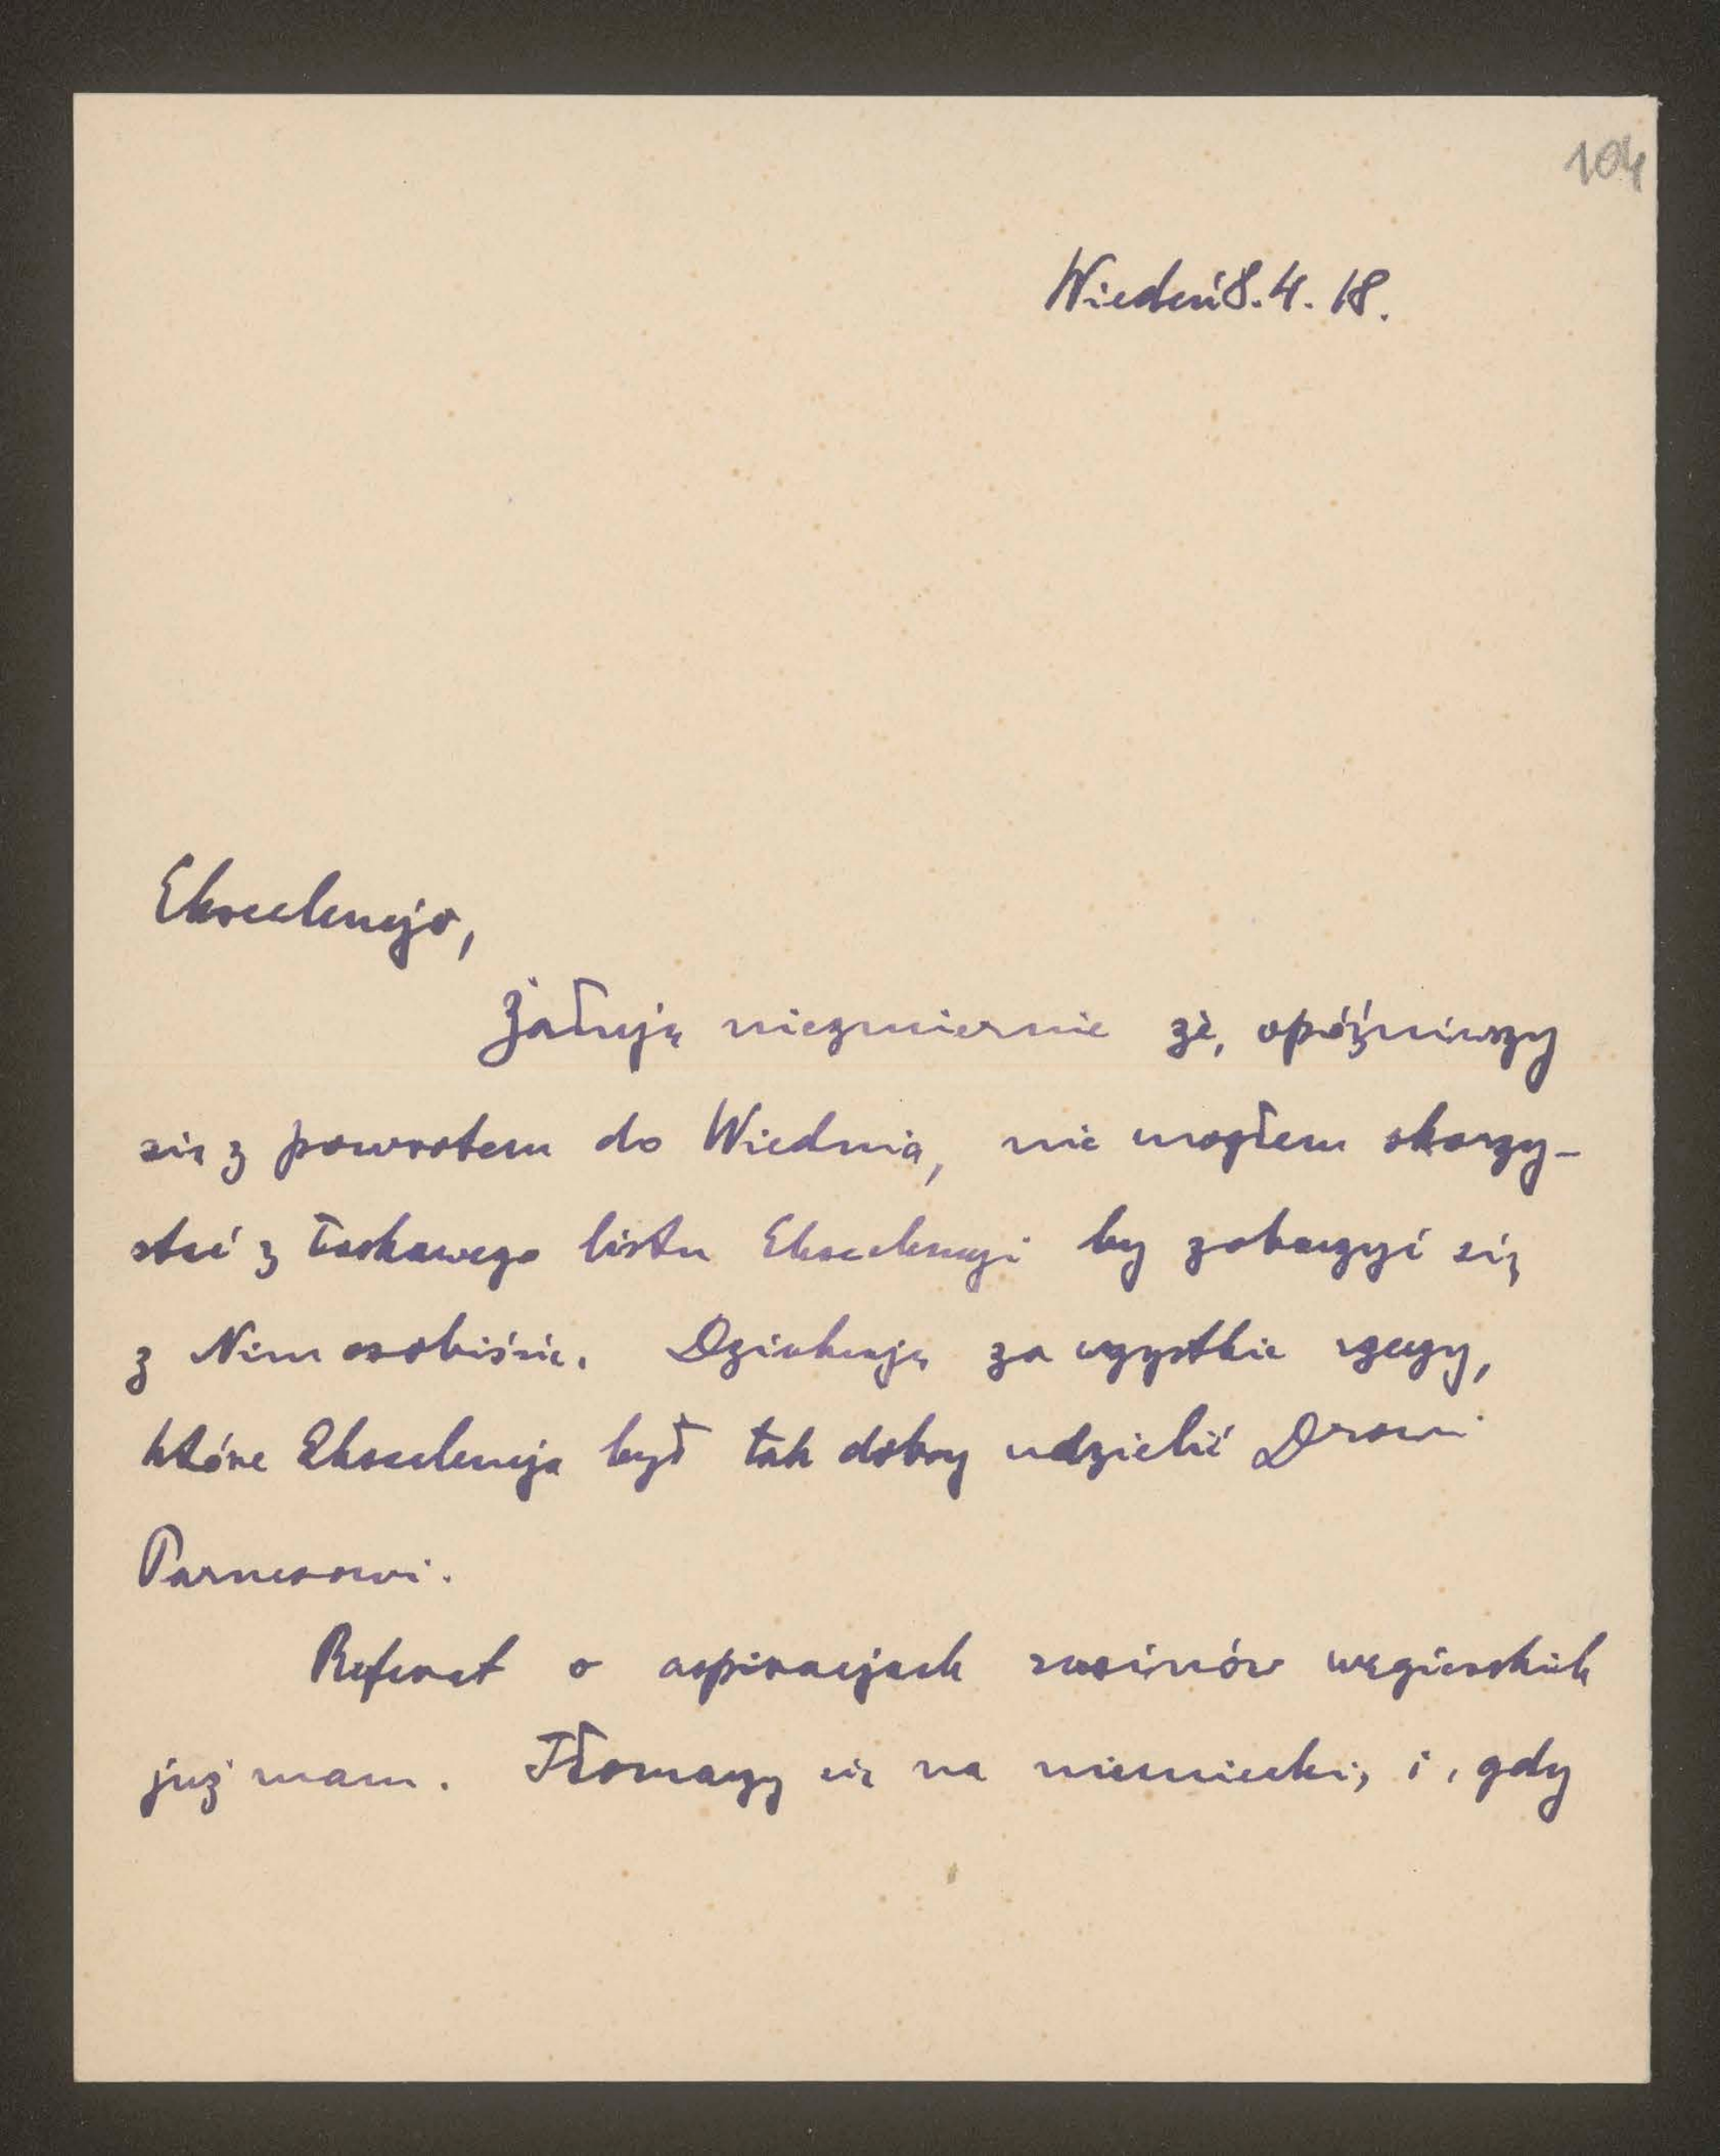 104
Wiedeń 8.4.18.
Ekscelencjo,
Żałuję niezmiernie że, opóźniwszy
się z powrotem do Wiednia, nie mogłem skorzy-
stać z łaskawego listu Ekscelencji by zobaczyć się
z Nim osobiście. Dziękuję za wszystkie rzeczy,
które Ekscelencja był tak dobry udzielić Drowi
Parnesowi.
Referat o aspiracjach rusinów węgierskich
już mam. Tłomaczy się na niemiecki, i, gdy